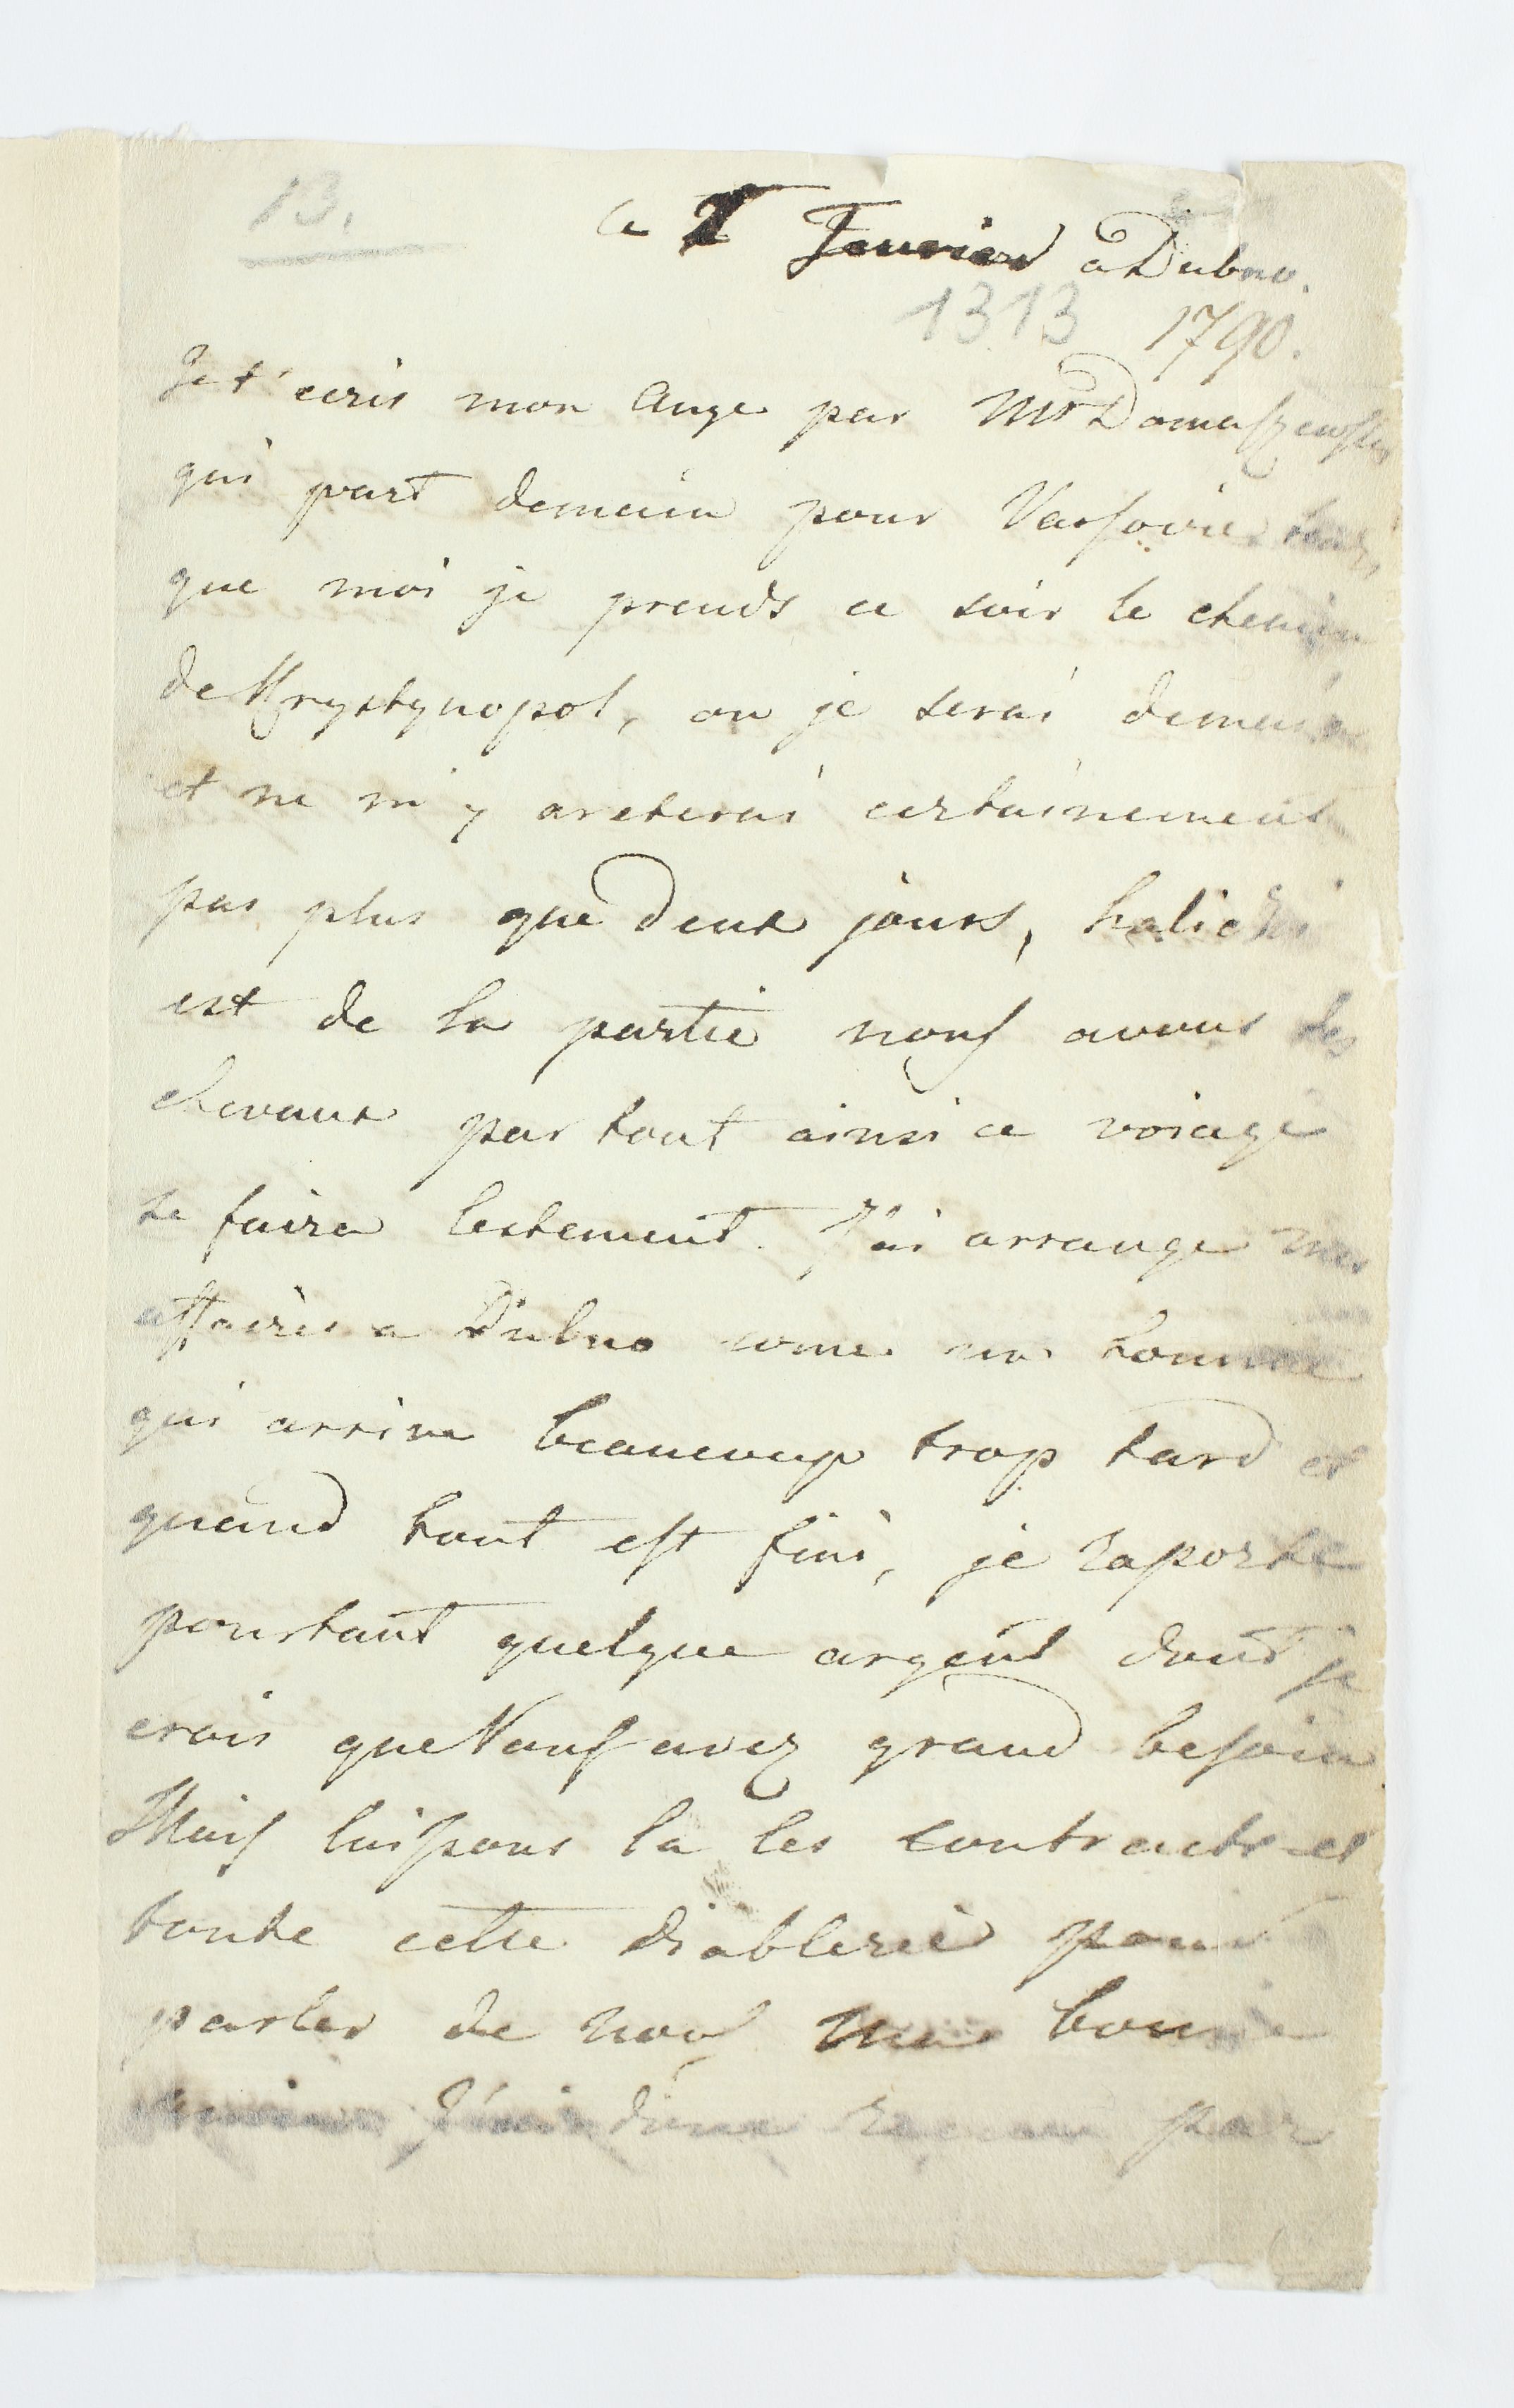 13.
le 2 Fevrier a Dubno.
1313 1790.
Je t'ecris mon Ange par Mr Domaszewski
qui part demain pour Varsovie
que moi je prends ce soir le chemin
de Krystynopol, ou je serai demain
et ne m'y areterai certainement
pas plus que deux jours, halicki
est de la partie nous avons des
chevaux par tout ainsi ce voiage
se faira lestement. J'ai arrange mes
affaires a Dubno come un homme
qui arrive beaucoup trop tard et
quand tout est fini, je raporte
pourtant quelque argent dont je
crois que Vous avez grand besoin
Mais laissons la les contracts et
toute cette diablerie pour
parler de nous ma bonne
par